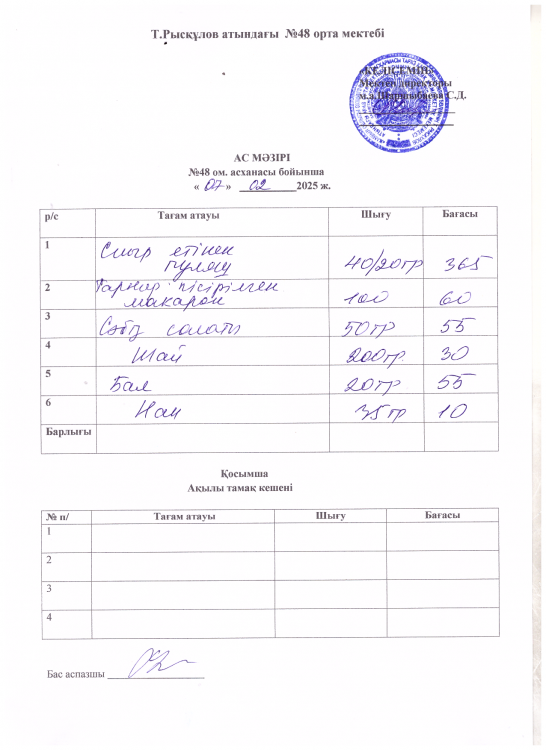 Т.Рысқұлов атындағы №48 орта мектебі
Мектеп директоры
С.Д.
АС МӘЗІРІ
№48 ом. асханасы бойынша
« 07 » 02 2025 ж.
р/с Тағам атауы Шығу Бағасы
1 Сиыр етінен
гуляш 40/20гр 365
2 Гарнир пісірілген
макарон 100 60
3 Сәбіз салаты 50гр 55
4 Шай 200гр 30
5 Бал 20гр 55
6 Нан 35гр 10
Барлығы
Қосымша
Ақылы тамақ кешені
№ п/ Тағам атауы Шығу Бағасы
1
2
3
4
Бас аспазшы